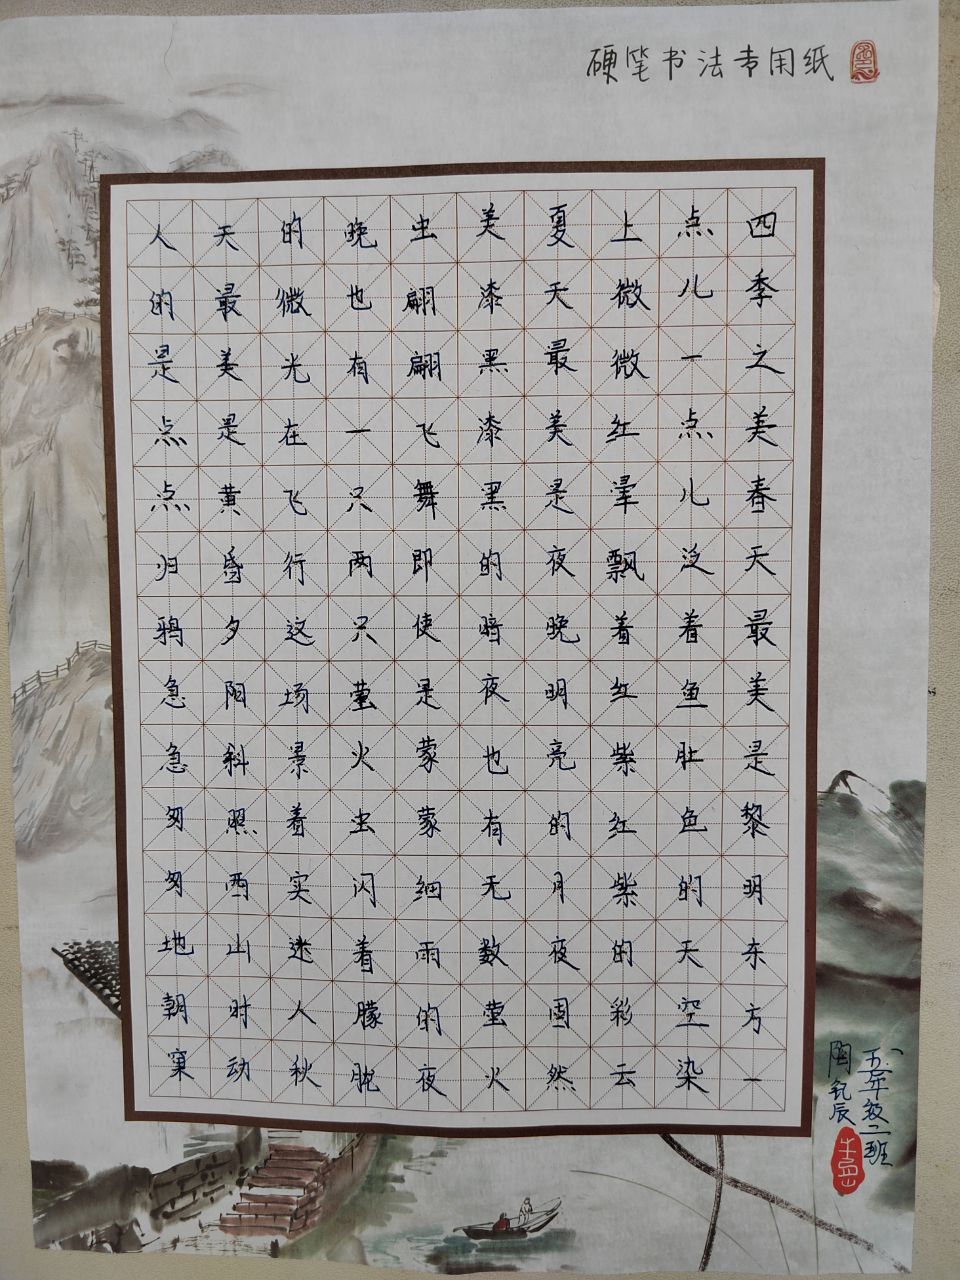 硬笔书法专用纸
四季之美春天最美是黎明东方一
点儿一点儿泛着鱼肚色的天空染
上微微红晕飘着红紫红紫的彩云
夏天最美是夜晚明亮的月夜固然
美漆黑漆黑的暗夜也有无数萤火
虫翩翩飞舞即使是蒙蒙细雨的夜
晚也有一只两只萤火虫闪着朦胧
的微光在飞行这场景着实迷人秋
天最美是黄昏夕阳斜照西山时动
人的是点点归鸦急急匆匆地朝窠
五年级二班